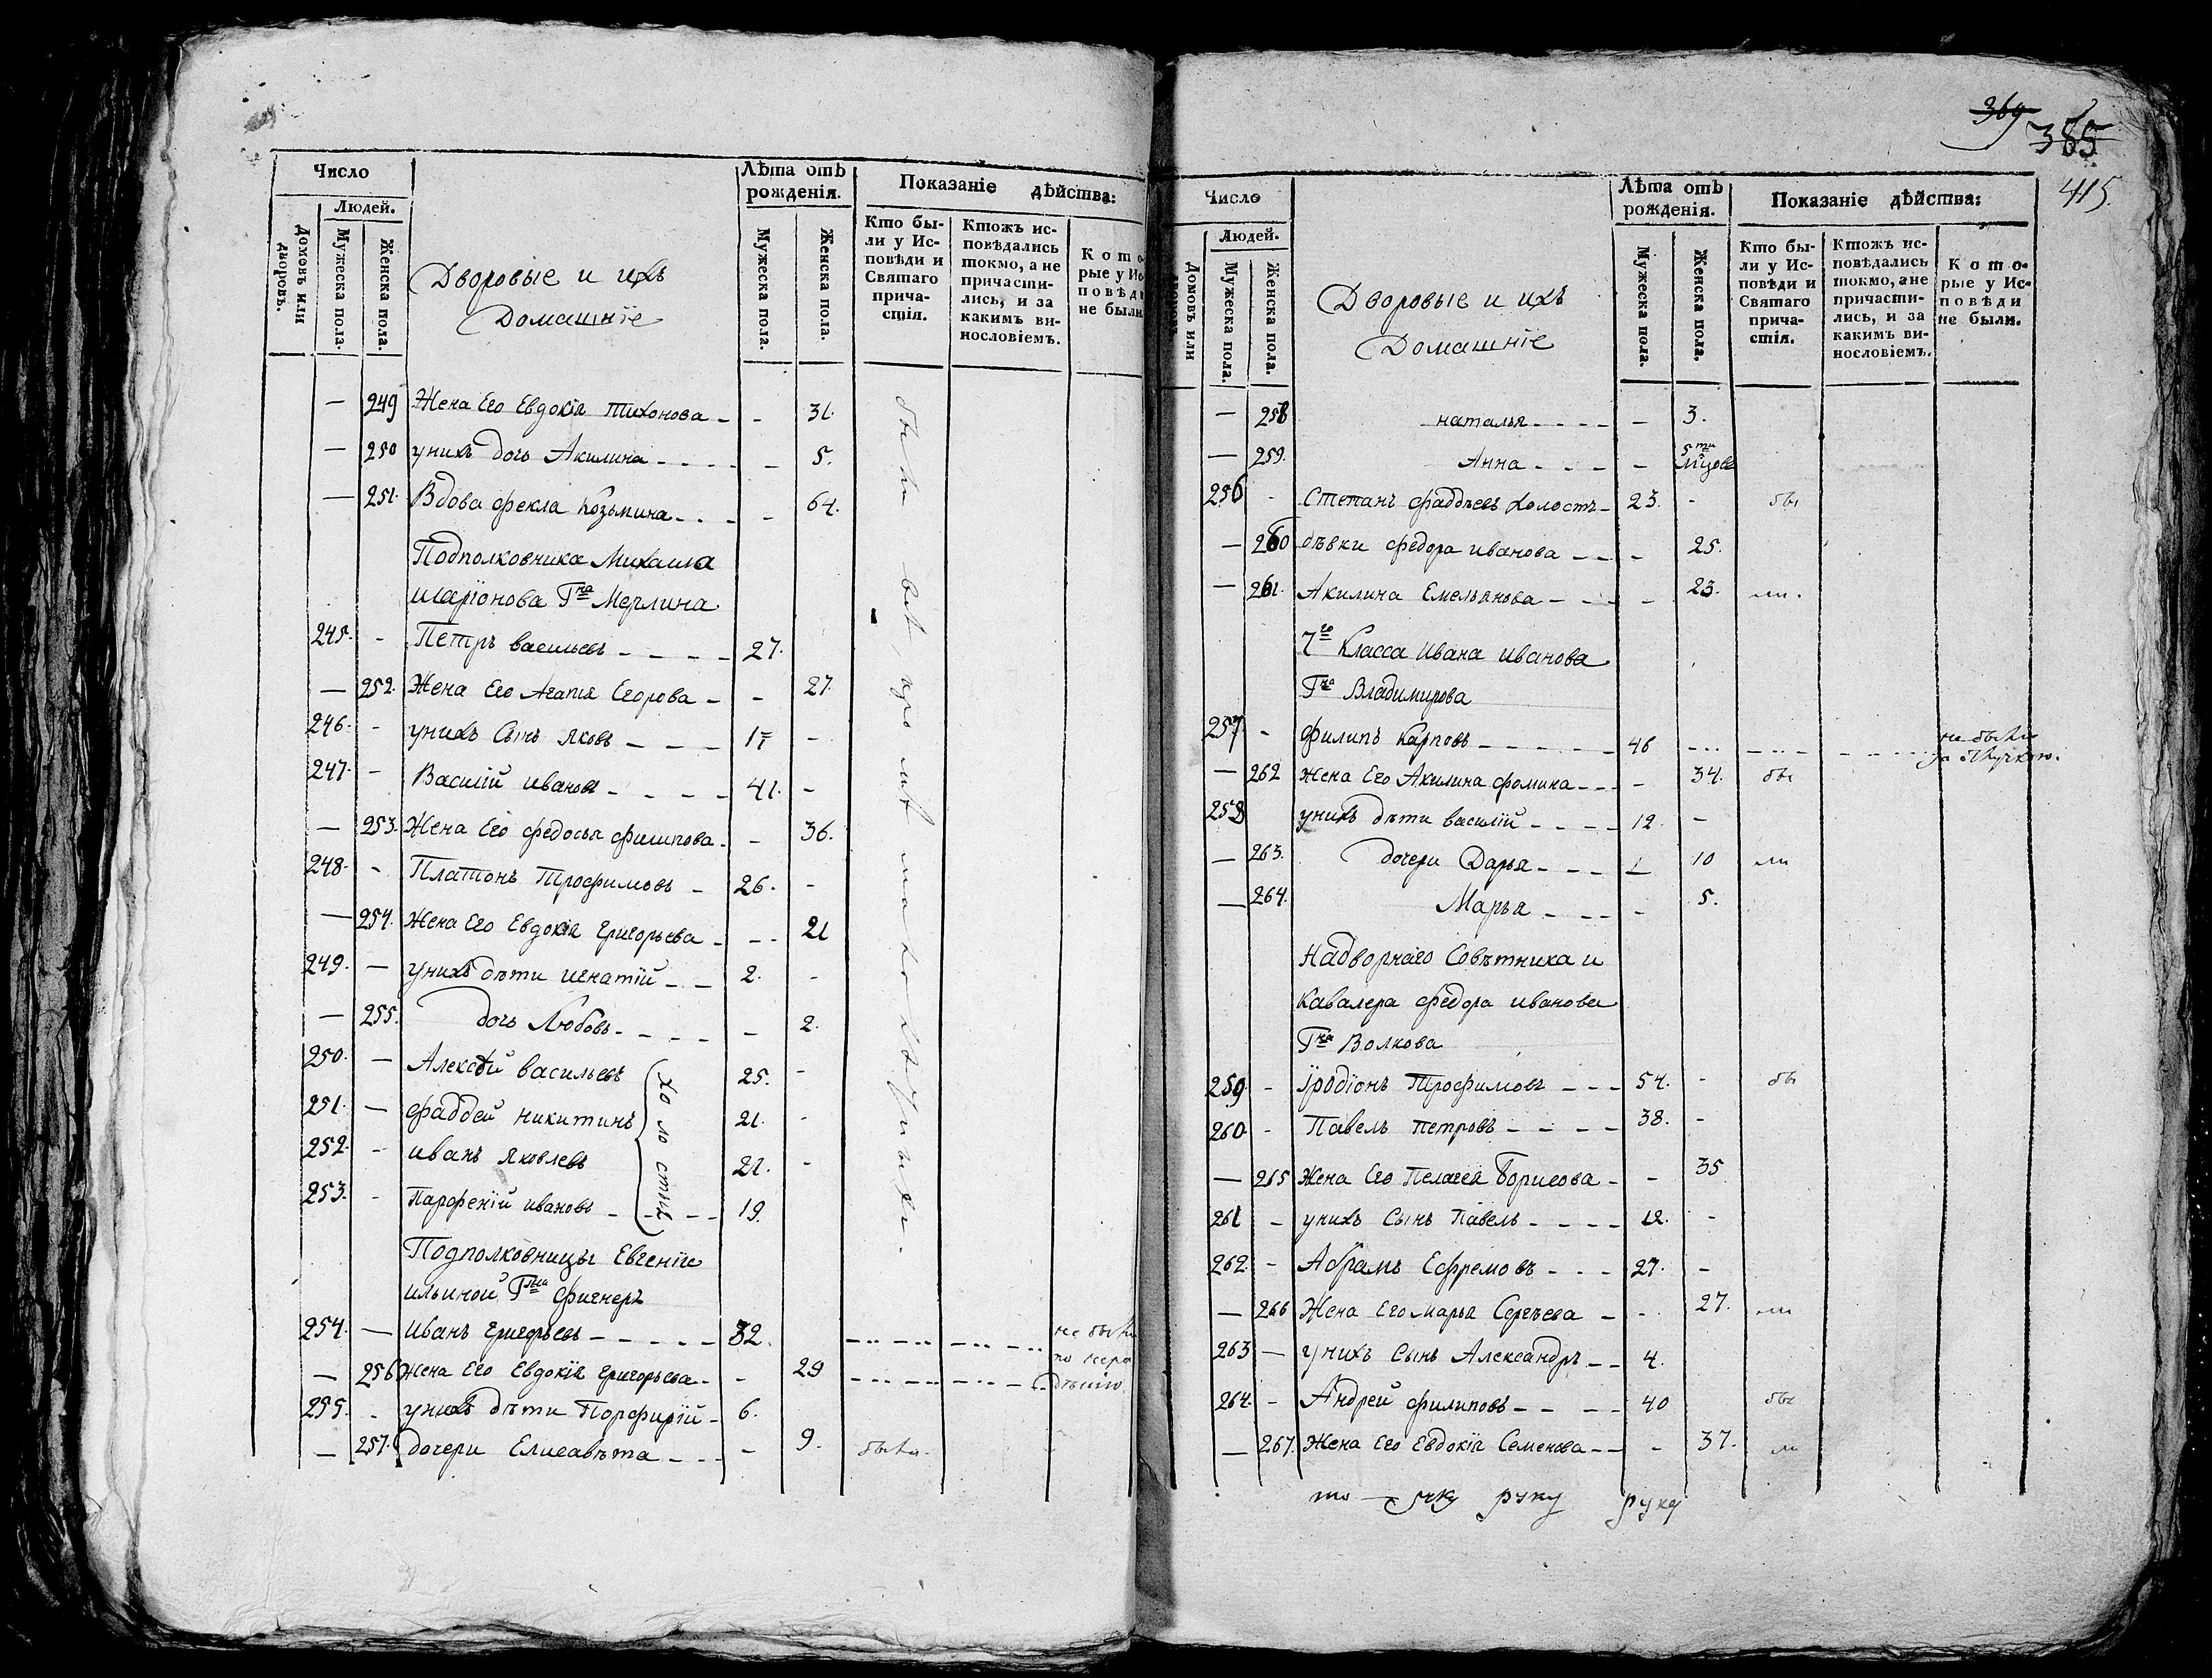 Число
Людей.
Домовъ или дворовъ.
Мужеска пола.
Женска пола.
Дворовые и ихъ
Домашніе
Лѣта отъ рожденія.
Мужеска пола.
Женска пола.
Показаніе дѣйства:
Кто бы-
ли у Ис-
повѣди и
Святаго
прича-
стія.
Ктожъ ис-
повѣдались
токмо, а не
причасти-
лись, и за
какимъ ви-
нословіемъ.
Кото-
рые у Ис-
повѣди
не были
— 249 Жена Его Евдокія Тихонова - - 31.
— 250 унихъ дочь Акилина - - - - - 5.
— 251. Вдова Фекла Козьмина - - - - 64.
Подполковника Михаила
иларіонова Гна Мерлина
245. - Петръ васильевъ - - - - 27.
— 252. Жена Его Агапія Егорова - - 27.
246. - унихъ Сынъ Яковъ - - - -
247. - Василій ивановъ - - - - 41. -
— 253. Жена Его Федосья Филипова - - 36.
248. - Платонъ Трофимовъ - 26. -
— 254. Жена Его Евдокія Григорьева - - - 21
249. — унихъ дѣти игнатій - - 2. -
— 255. дочь Любовь - - - - - 2.
250. — Алексѣй васильевъ 25. -
251. — Фаддей никитинъ 21. -
252. - иванъ Яковлевъ 21. -
253. - Парфеній ивановъ - - - - 19.
холостых
Подполковницы Евгеніи
ильиной Гжи Фигнеръ
254. — Иванъ Григорьевъ - - - - - 32. не были
— 256 Жена Его Евдокія Григорьева - - 29 по нера
дѣнію
255. - унихъ дѣти Порфирій - 6.
— 257. дочери Елисавѣта - - - - 9. были.
были всѣ, кромѣ малолѣтныхъ.
369
385
415.
Число
Людей.
Домовъ или дворовъ.
Мужеска пола.
Женска пола.
Дворовые и ихъ
Домашніе
Лѣта отъ рожденія.
Мужеска пола.
Женска пола.
Показаніе дѣйства:
Кто бы-
ли у Ис-
повѣди и
Святаго
прича-
стія.
Ктожъ ис-
повѣдались
токмо, а не
причасти-
лись, и за
какимъ ви-
нословіемъ.
Кото-
рые у Ис-
повѣди
не были.
— 258 наталья - - - - - 3.
— 259. Анна - - - - 5ти мцовъ
256 - Степанъ Фаддѣевъ холостъ - 23. - бы
— 260 дѣвки Федора иванова - - - 25.
— 261. Акилина Емельянова - - - - 23. ли.
7го Класса Ивана иванова
Гна Владимирова
257. - Филипъ Карповъ - - - - - 46 не были
за отлучкою.
— 262 Жена Его Акилина Фомина - - - - 34. бы
258 унихъ дѣти василій - - - - 12. -
— 263. дочери Дарья - - - - 10 ли
— 264. Марья - - - - - 5.
Надворнаго Совѣтника и
Кавалера Федора иванова
Гна Волкова
259. - Іродіонъ Трофимовъ - - - 54. - бы
260. - Павелъ Петровъ - - - - 38. -
— 265 Жена Его Пелагея Борисова - - 35
261 - унихъ Сынъ Павелъ - - - - 12. -
262. - Абрамъ Ефремовъ - - - 27. -
— 266 Жена Его Марья Сергѣева - - 27. ли
263 — унихъ Сынъ Александръ - - 4.
264. - Андрей Филиповъ - - - - 40 бы
— 267. Жена Его Евдокія Семенова - - - 37. ли
руку руку